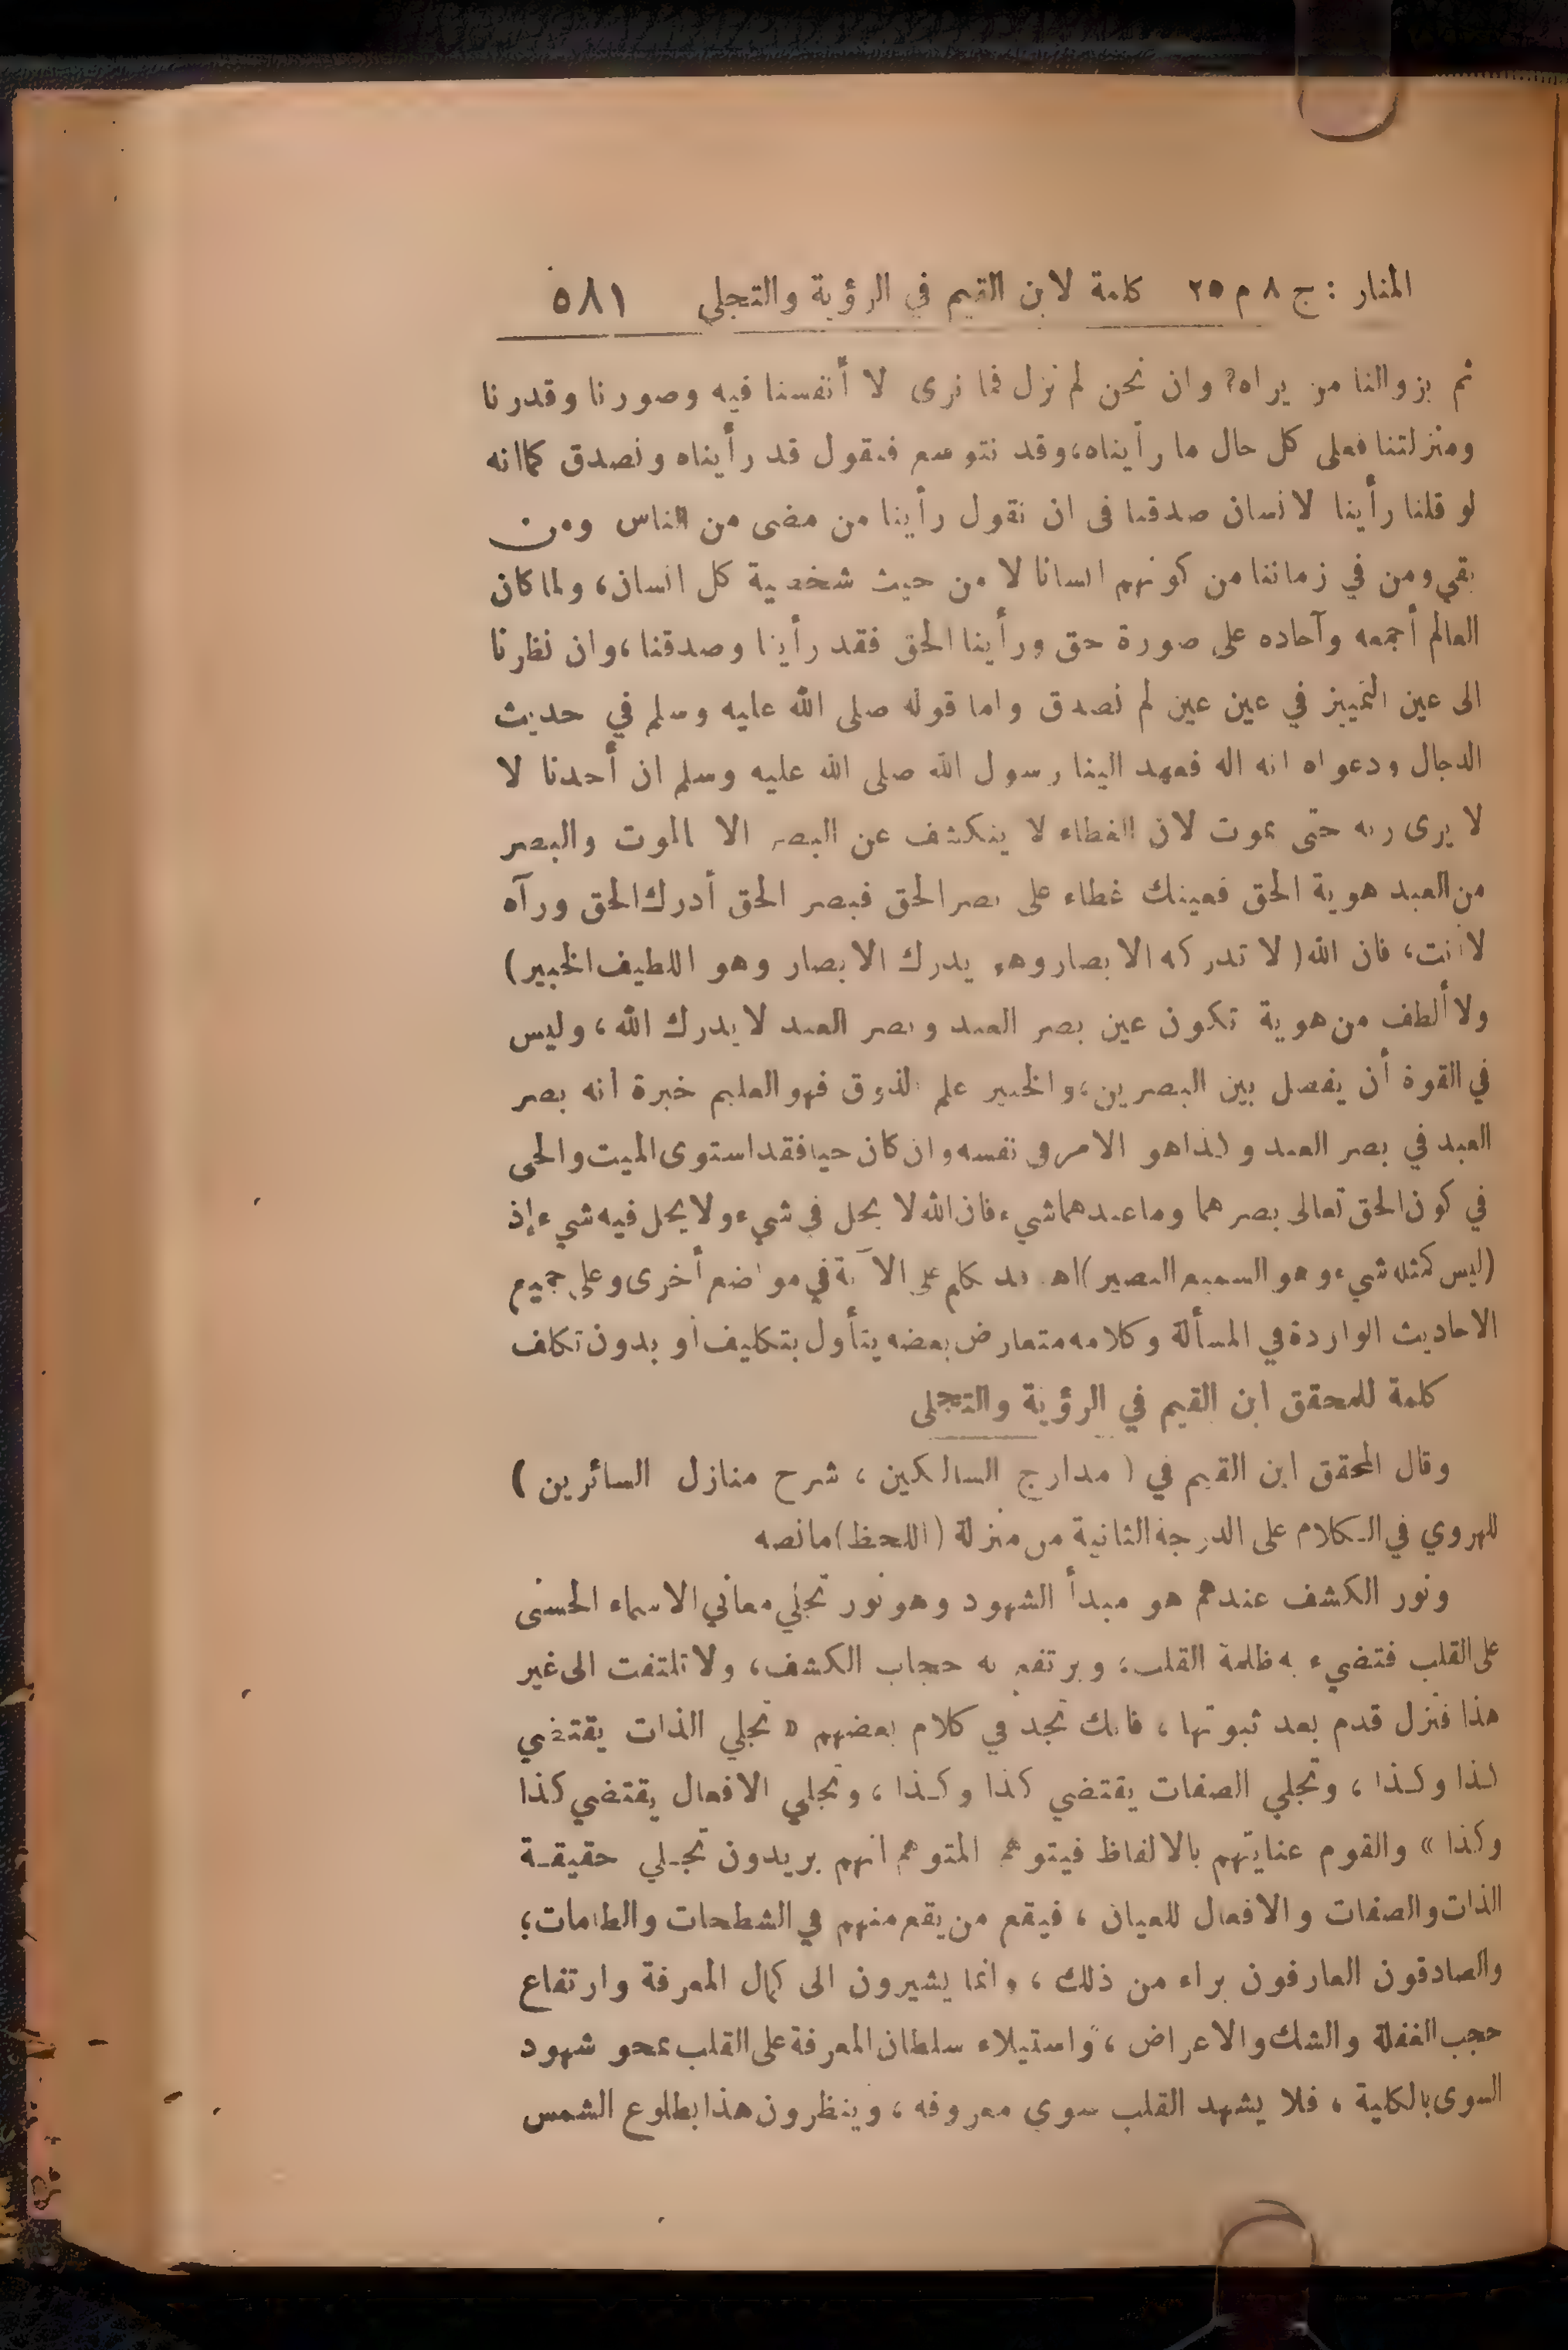 المنار : ج ٨ م ٢٥ كلمة لابن القيم في الرؤية والتجلي ٥٨١
ثم بزوالنا من يراه؟ وان نحن لم نزل فما نرى لا أنفسنا فيه وصورنا وقدرنا
ومنزلتنا فعلى كل حال ما رأيناه، وقد نتوسع فنقول قد رأيناه ونصدق كما انه
لو قلنا رأينا لانسان صدقنا في ان نقول رأينا من مضى من الناس ومن
بقي ومن في زماننا من كونهم انسانا لا من حيث شخصية كل انسان، ولما كان
العالم أجمعه وآحاده على صورة حق ورأينا الحق فقد رأينا وصدقنا، وان نظرنا
الى عين التمييز في عين عين لم نصدق واما قوله صلى الله عليه وسلم في حديث
الدجال ودعواه انه اله فعهد الينا رسول الله صلى الله عليه وسلم ان أحدنا لا
لا يرى ربه حتى يموت لان الغطاء لا ينكشف عن البصر الا بالموت والبصر
من العبد هوية الحق فعينك غطاء على بصر الحق فبصر الحق أدرك الحق ورآه
لا أنت، فان الله (لا تدركه الابصار وهو يدرك الابصار وهو اللطيف الخبير)
ولا ألطف من هوية تكون عين بصر العبد وبصر العبد لا يدرك الله، وليس
في القوة أن يفصل بين البصرين، والخبير علم الذوق فهو العليم خبرة انه بصر
العبد في بصر العبد وكذا هو الامر في نفسه وان كان حيا فقد استوى الميت والحي
في كون الحق تعالى بصرهما وما عندهما شيء فان الله لا يحل في شيء ولا يحل فيه شيء إذ
(ليس كمثله شيء وهو السميع البصير) اهـ. وقد تكلم على الآية في مواضع أخرى وعلى جميع
الاحاديث الواردة في المسألة وكلامه متعارض بعضه يتأول بتكليف أو بدون تكلف
كلمة للمحقق ابن القيم في الرؤية والتجلي
وقال المحقق ابن القيم في (مدارج السالكين، شرح منازل السائرين)
للهروي في الكلام على الدرجة الثانية من منزلة (اللحظ) ما نصه
ونور الكشف عندهم هو مبدأ الشهود وهو نور تجلي معاني الاسماء الحسنى
على القلب فتضيء به ظلمة القلب، ويرتفع به حجاب الكشف، ولا تلتفت الى غير
هذا فتزل قدم بعد ثبوتها، فانك تجد في كلام بعضهم « تجلي الذات يقتضي
كذا وكذا، وتجلي الصفات يقتضي كذا وكذا، وتجلي الافعال يقتضي كذا
وكذا » والقوم عنايتهم بالالفاظ فيتوهم المتوهم انهم يريدون تجلي حقيقة
الذات والصفات والافعال للعيان، فيقع من يقع منهم في الشطحات والطامات؛
والصادقون العارفون براء من ذلك، وانما يشيرون الى كمال المعرفة وارتفاع
حجب الغفلة والشك والاعراض، واستيلاء سلطان المعرفة على القلب بمحو شهود
السوى بالكلية، فلا يشهد القلب سوى معروفه، وينظرون هذا بطلوع الشمس